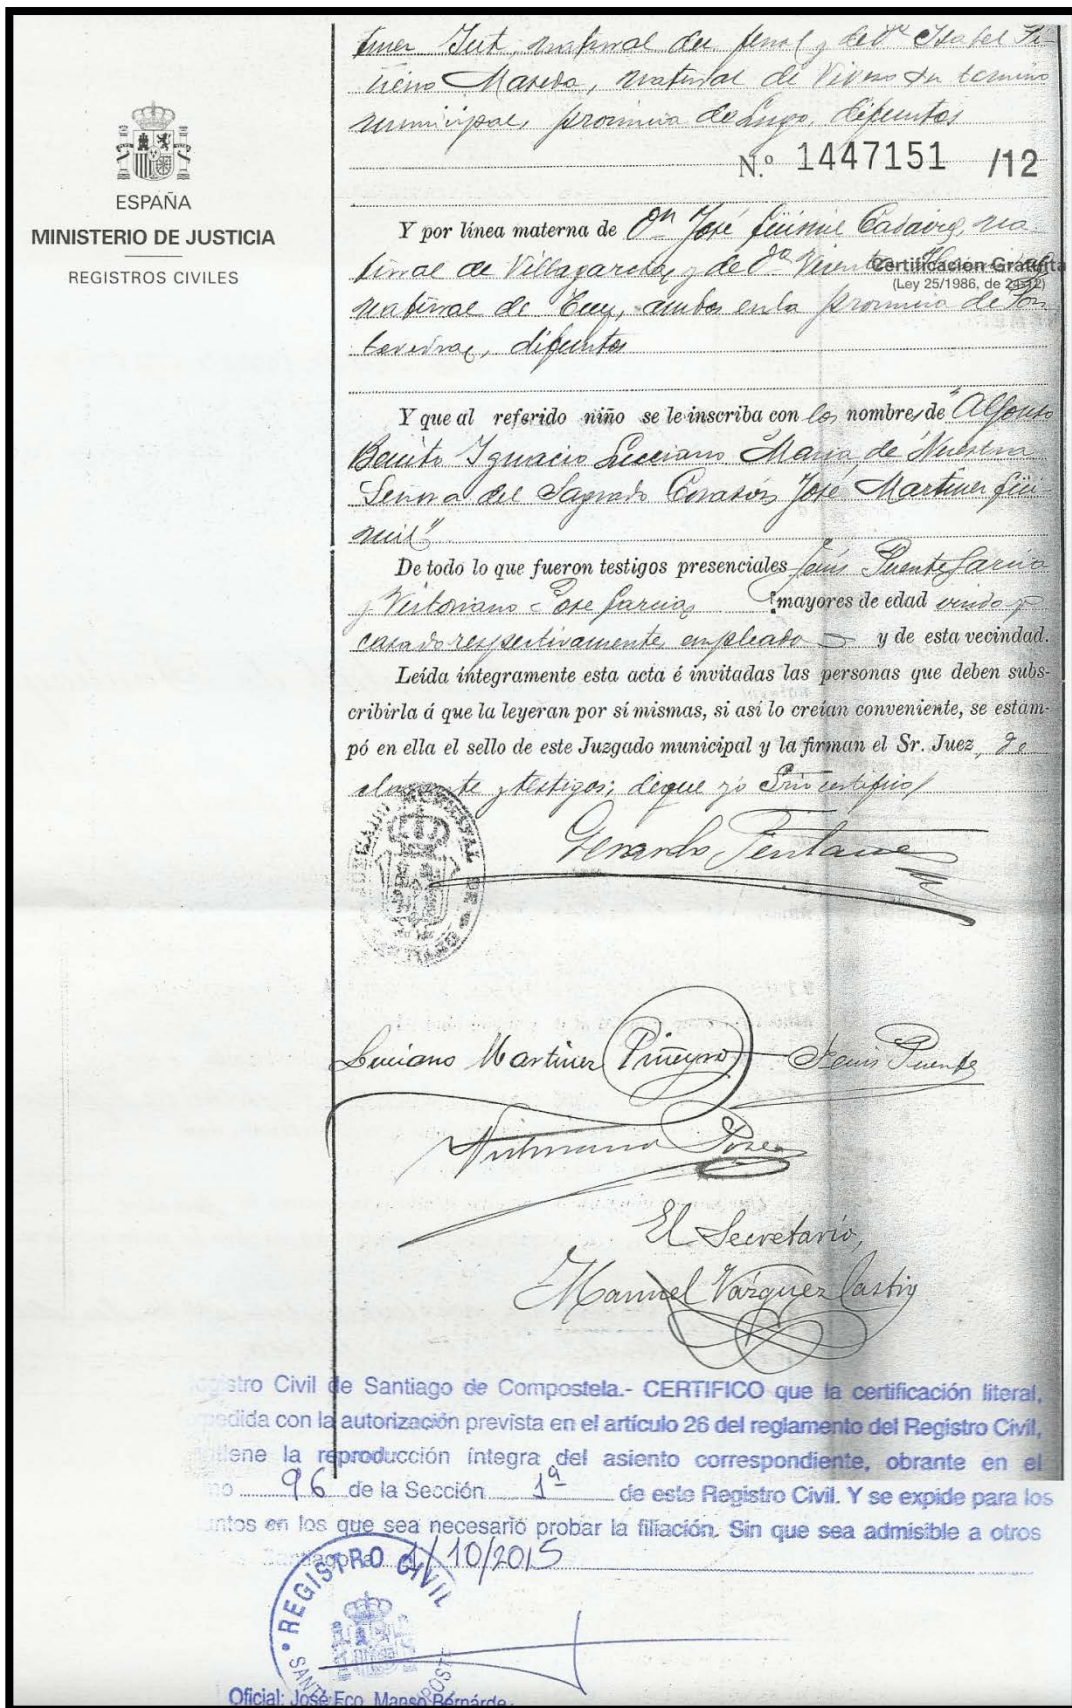 tinez Jut, natural del Ferrol y de Dª Isabel Pi-
ñeiro Maseda, natural de Vivero su termino
municipal, provincia de Lugo, difuntos
N.º 1447151 /12
ESPAÑA
MINISTERIO DE JUSTICIA
REGISTROS CIVILES
Y por línea materna de Dn José Güimil Casavig, na-
tural de Villagarcia, y de Dª Vicenta
Certificación Gratuita
(Ley 25/1986, de 24-12)
natural de Tuy, ambos en la provincia de Pon
tevedra, difuntos
Y que al referido niño se le inscriba con los nombres de "Alfonso
Benito Ignacio Luciano Maria de Nuestra
Señora del Sagrado Corazón José Martinez Güi-
mil"
De todo lo que fueron testigos presenciales Puente Garcia
y Victoriano Pose Garcia mayores de edad viudo y
casado respectivamente, empleado y de esta vecindad.
Leída íntegramente esta acta é invitadas las personas que deben subs-
cribirla á que la leyeran por sí mismas, si así lo creían conveniente, se estam-
pó en ella el sello de este Juzgado municipal y la firman el Sr. Juez, de
clarante y testigos; de que yo Srio certifico/
Gerardo
Luciano Martinez Piñeyro Puente
Victoriano Pose
El Secretario,
Manuel Vázquez Castro
gistro Civil de Santiago de Compostela.- CERTIFICO que la certificación literal,
pedida con la autorización prevista en el artículo 26 del reglamento del Registro Civil,
tiene la reproducción íntegra del asiento correspondiente, obrante en el
mo 96 de la Sección 1ª de este Registro Civil. Y se expide para los
untos en los que sea necesario probar la filiación. Sin que sea admisible a otros
Santiago a 1/10/2015
REGISTRO CIVIL
Oficial: José Fco. Manso Bernárde